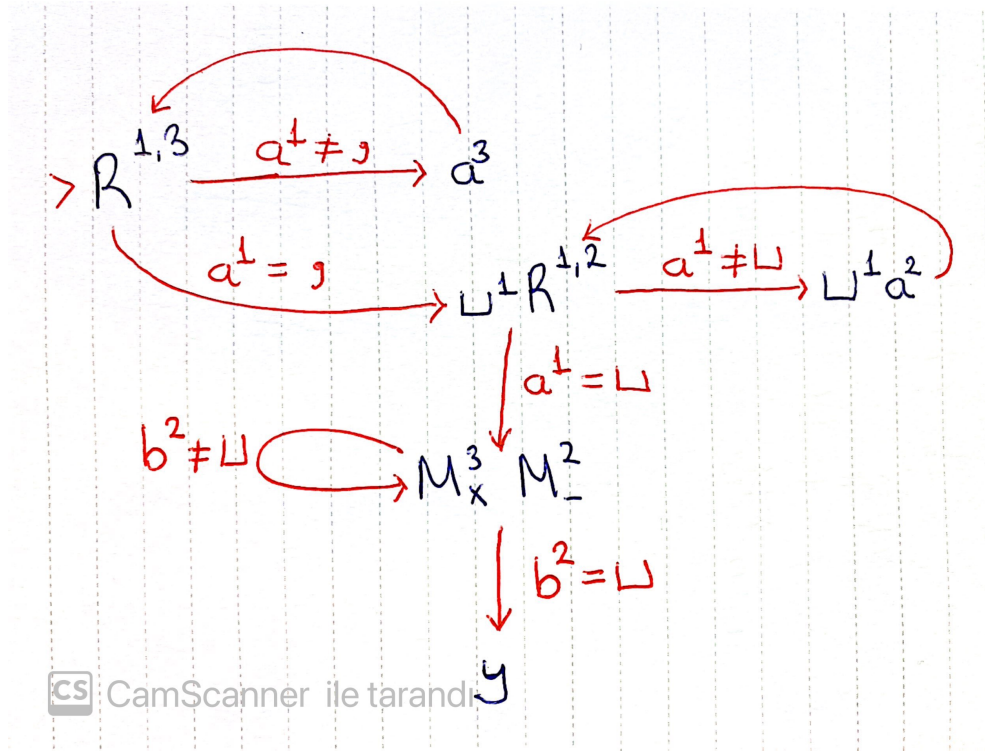 > R^{1,3} a^1 ≠ , a^3
a^1 = , ⊔^1 R^{1,2} a^1 ≠ ⊔ ⊔^1 a^2
a^1 = ⊔
b^2 ≠ ⊔ M^3_x M^2_-
b^2 = ⊔
y
CS CamScanner ile tarandı